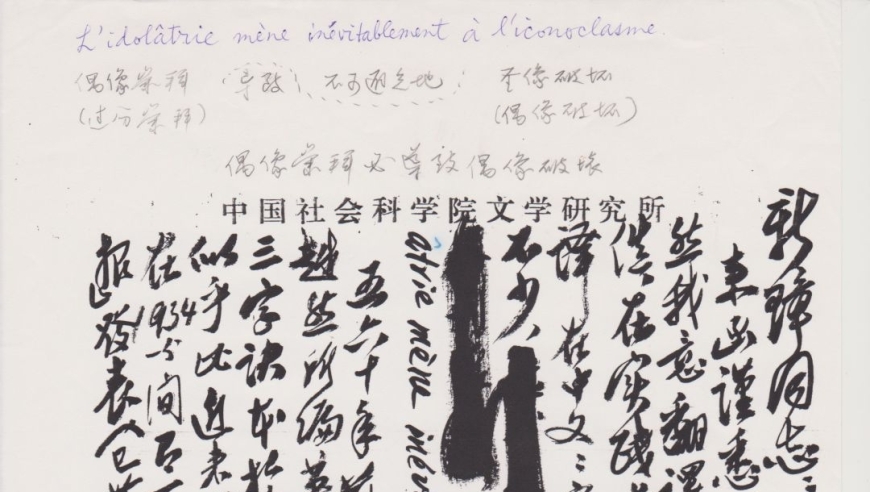 L'idolâtrie mène inévitablement à l'iconoclasme.
偶像崇拜 导致 不可避免地 圣像破坏
(过分崇拜) (偶像破坏)
偶像崇拜必导致偶像破坏
中国社会科学院文学研究所
新璋同志：
来函谨悉
然我意翻译
在实践
译 在中文
不少、
atrie mène inév
五六十年
然所编
三字诀本
似乎比近来
在1934年间
报发表